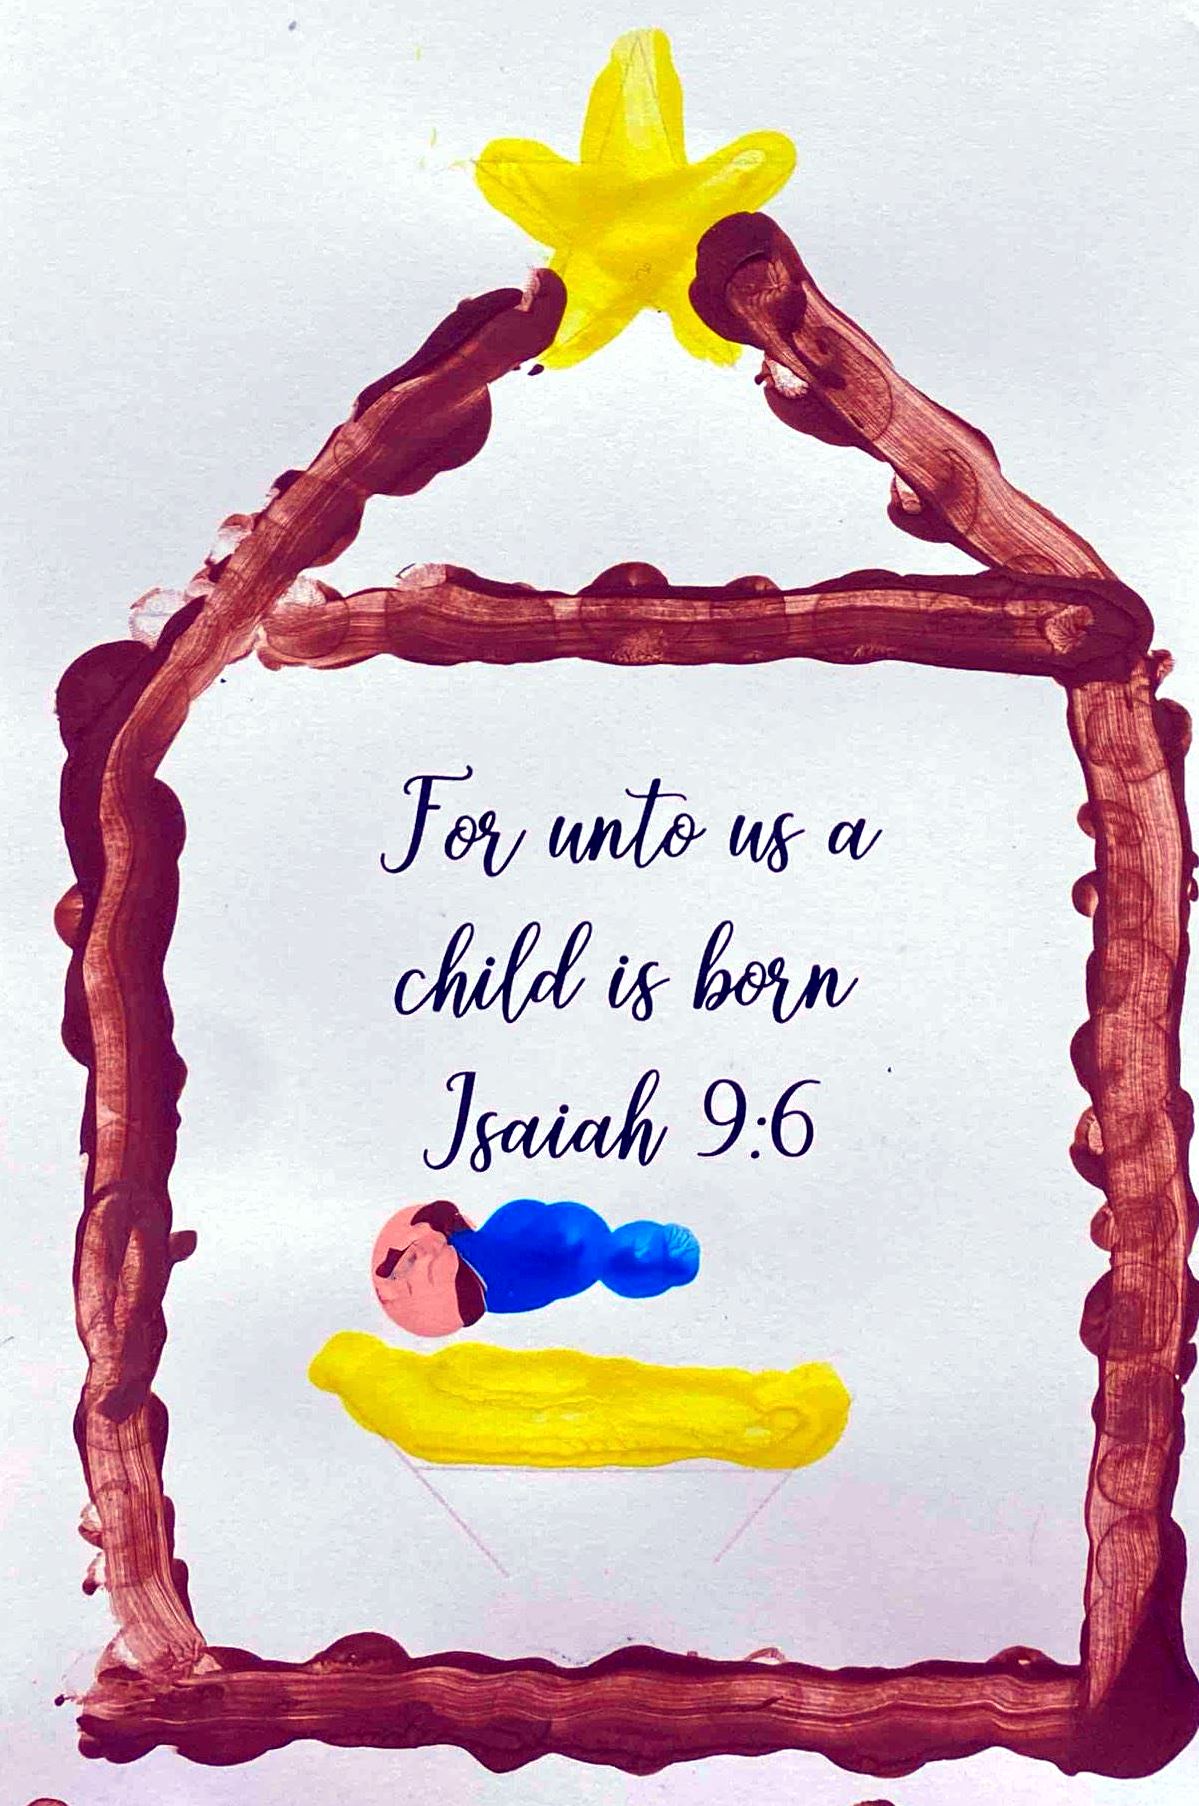 For unto us a
child is born
Isaiah 9:6